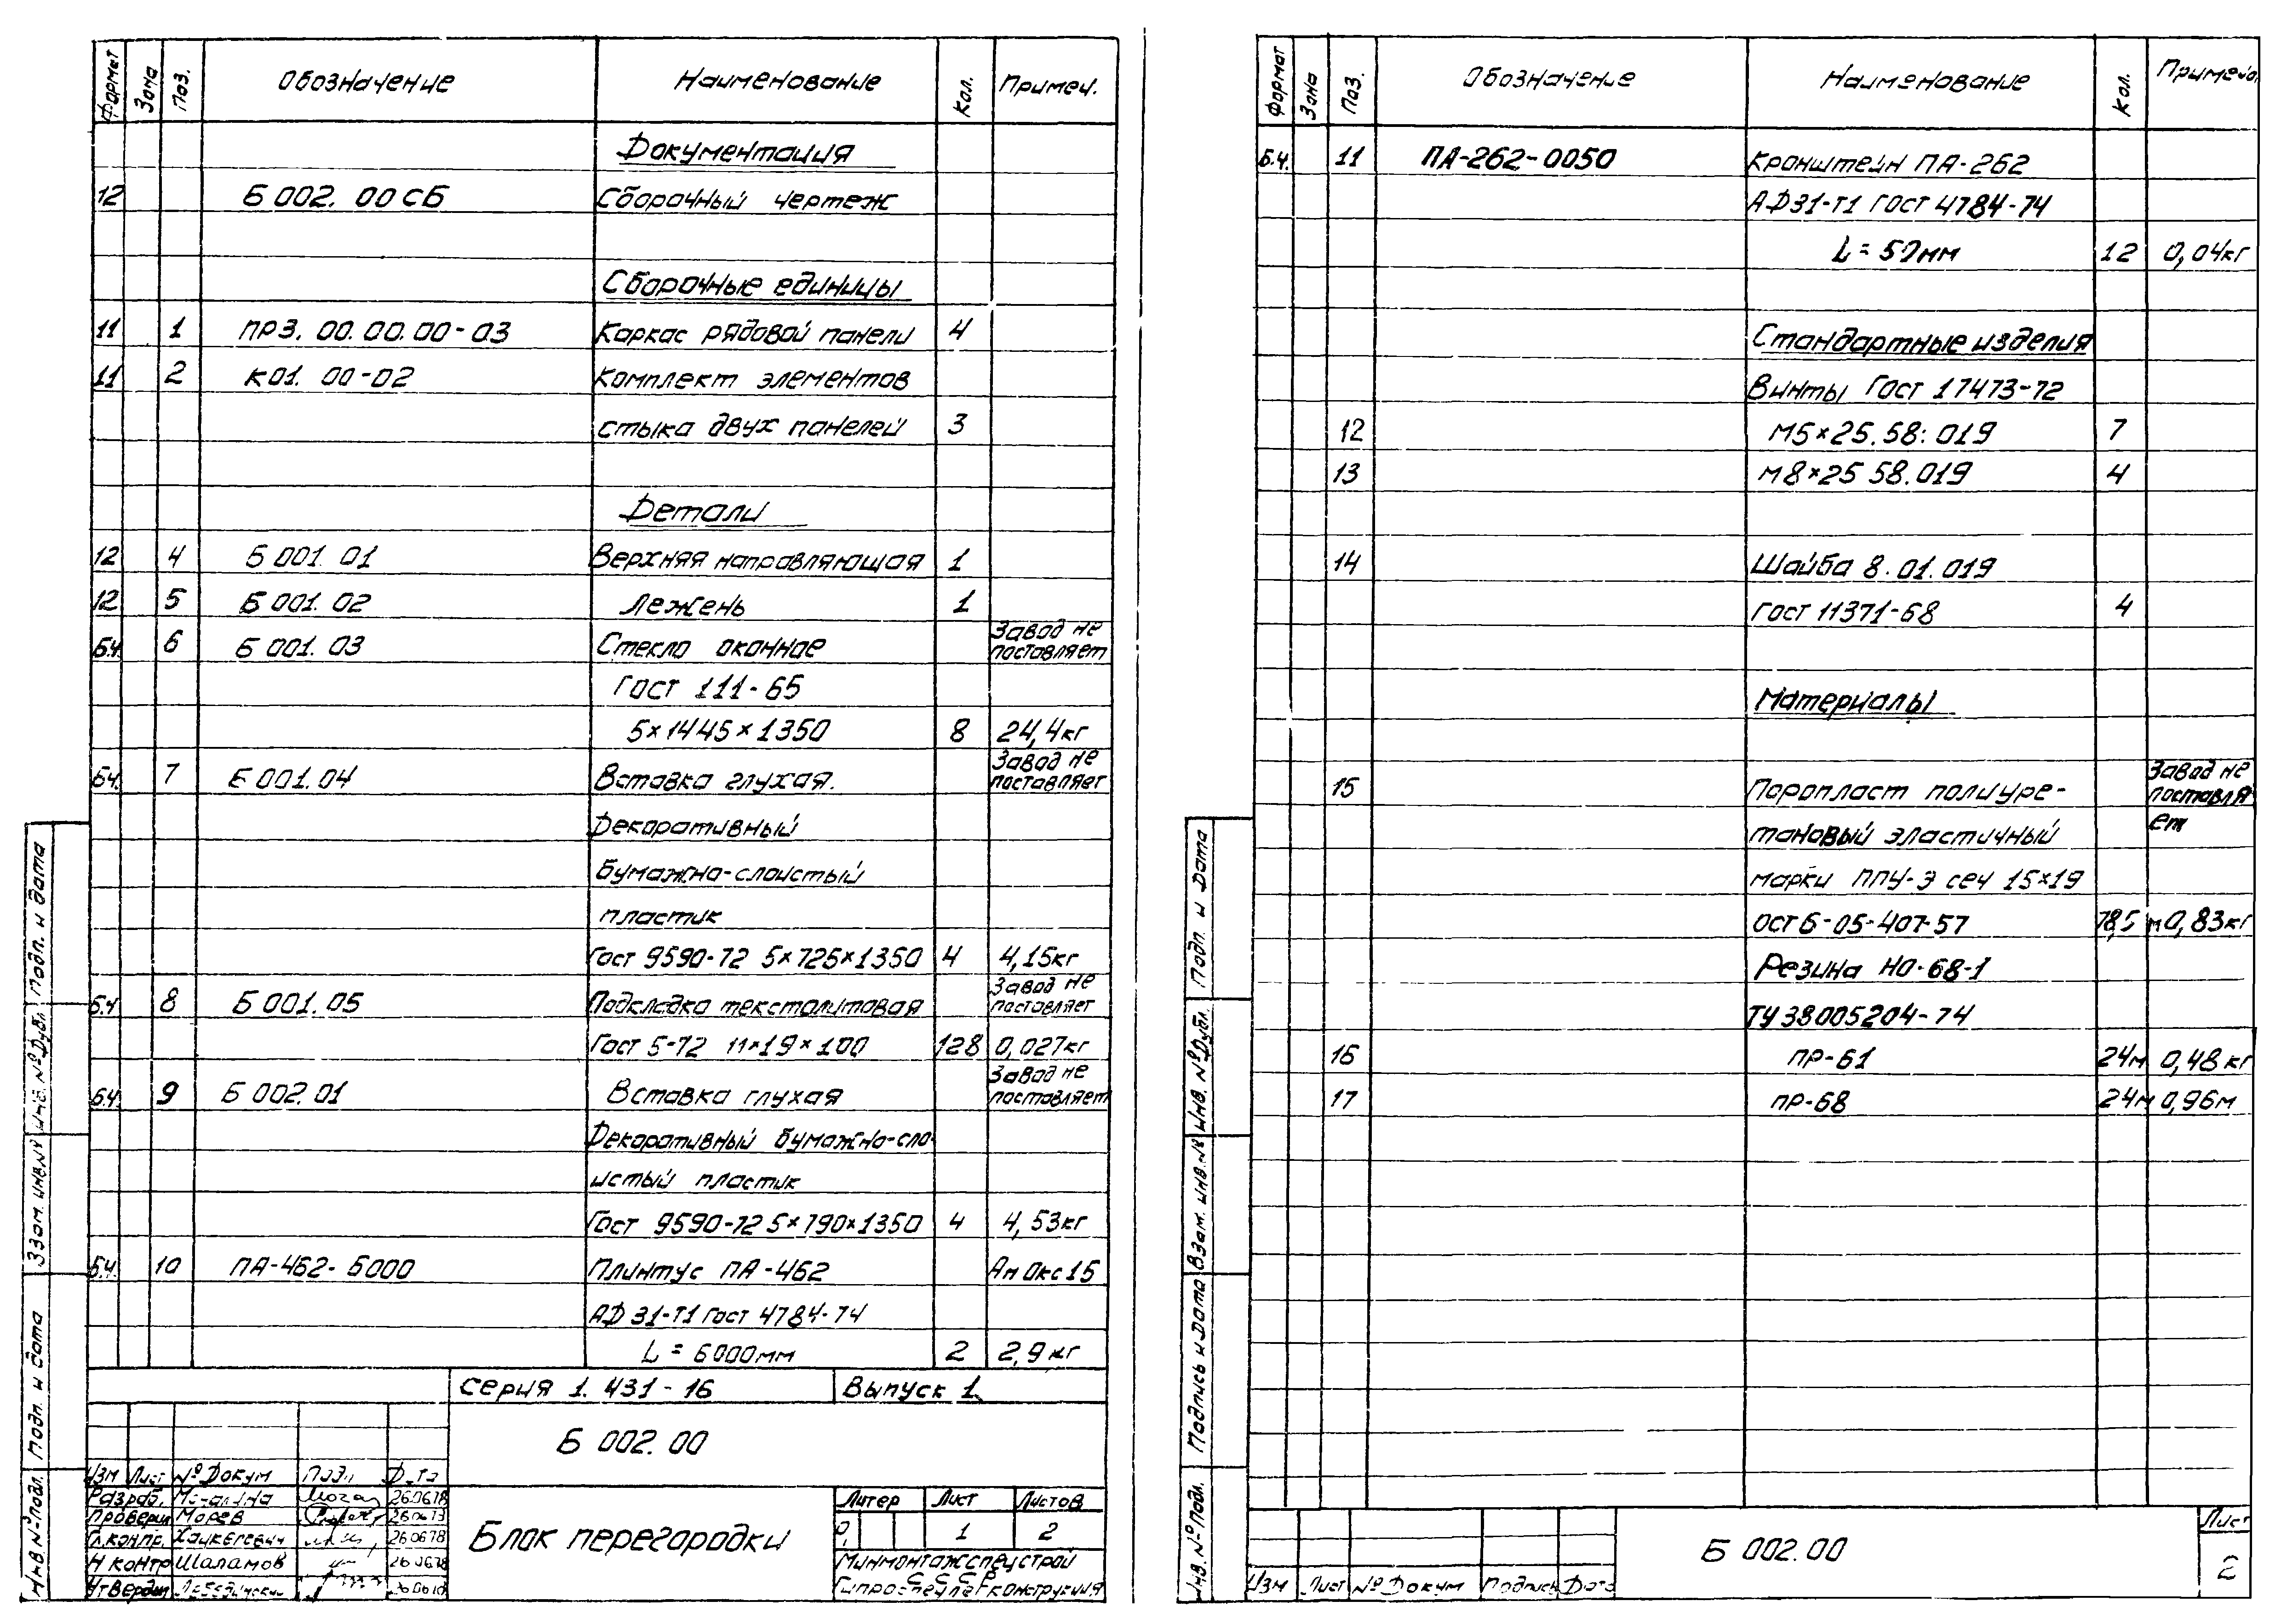 Формат Зона Поз. Обозначение Наименование Кол. Примеч.
Документация
12 Б 002. 00 СБ Сборочный чертеж
Сборочные единицы
11 1 ПР3. 00. 00. 00-03 Каркас рядовой панели 4
11 2 К01. 00-02 Комплект элементов
стыка двух панелей 3
Детали
12 4 Б 001. 01 Верхняя направляющая 1
12 5 Б 001. 02 Лежень 1
Б.Ч. 6 Б 001. 03 Стекло оконное Завод не поставляет
ГОСТ 111-65
5×1445×1350 8 24,4кг
Б.Ч. 7 Б 001.04 Вставка глухая. Завод не поставляет
Декоративный
бумажно-слоистый
пластик
Гост 9590-72 5×725×1350 4 4,15кг
Б.Ч 8 Б 001.05 Подкладка текстолитовая Завод не поставляет
Гост 5-72 11×19×100 128 0,027кг
Б.Ч. 9 Б 002.01 Вставка глухая Завод не поставляет
Декоративный бумажно-сло-
истый пластик
Гост 9590-72 5×790×1350 4 4,53кг
Б.Ч. 10 ПА-462-6000 Плинтус ПА-462 Ан Окс 15
АД 31-Т1 Гост 4784-74
L = 6000мм 2 2,9 кг
Серия 1. 431-16 Выпуск 1
Б 002.00
Изм Лист № Докум Подп Дата
Разраб. 26.06.78
Проверил Морев
Гл.контр. 26.06.78
Н контр Шаламов 26.06.78
Утвердил
Блок перегородки
Литер Лист Листов
1 2
Минмонтажспецстрой
СССР
Гипроспецлегконструкция
Подп. и дата
Инв. № Дубл
Взам. инв.№
Подп. и дата
Инв. № подл.
Формат Зона Поз. Обозначение Наименование Кол. Примеча.
Б.Ч. 11 ПА-262-0050 Кронштейн ПА-262
АД31-Т1 Гост 4784-74
L = 50мм 12 0,04кг
Стандартные изделия
Винты Гост 17473-72
12 М5×25.58.019 7
13 М8×25 58.019 4
14 Шайба 8.01.019
Гост 11371-68 4
Материалы
15 Поропласт полиуре- Завод не
поставля
тановый эластичный ет
марки ППУ-Э сеч 15×19
ОСТ 6-05-407-57 78,5 м 0,83кг
Резина НО-68-1
ТУ 38005204-74
16 ПР-61 24м 0,48 кг
17 ПР-68 24м 0,96м
Б 002.00
Изм Лист № Докум Подпись Дата
Лист
2
Подп. и Дата
Инв. № Дубл.
Взам. инв. №
Подпись и Дата
Инв. № подл.